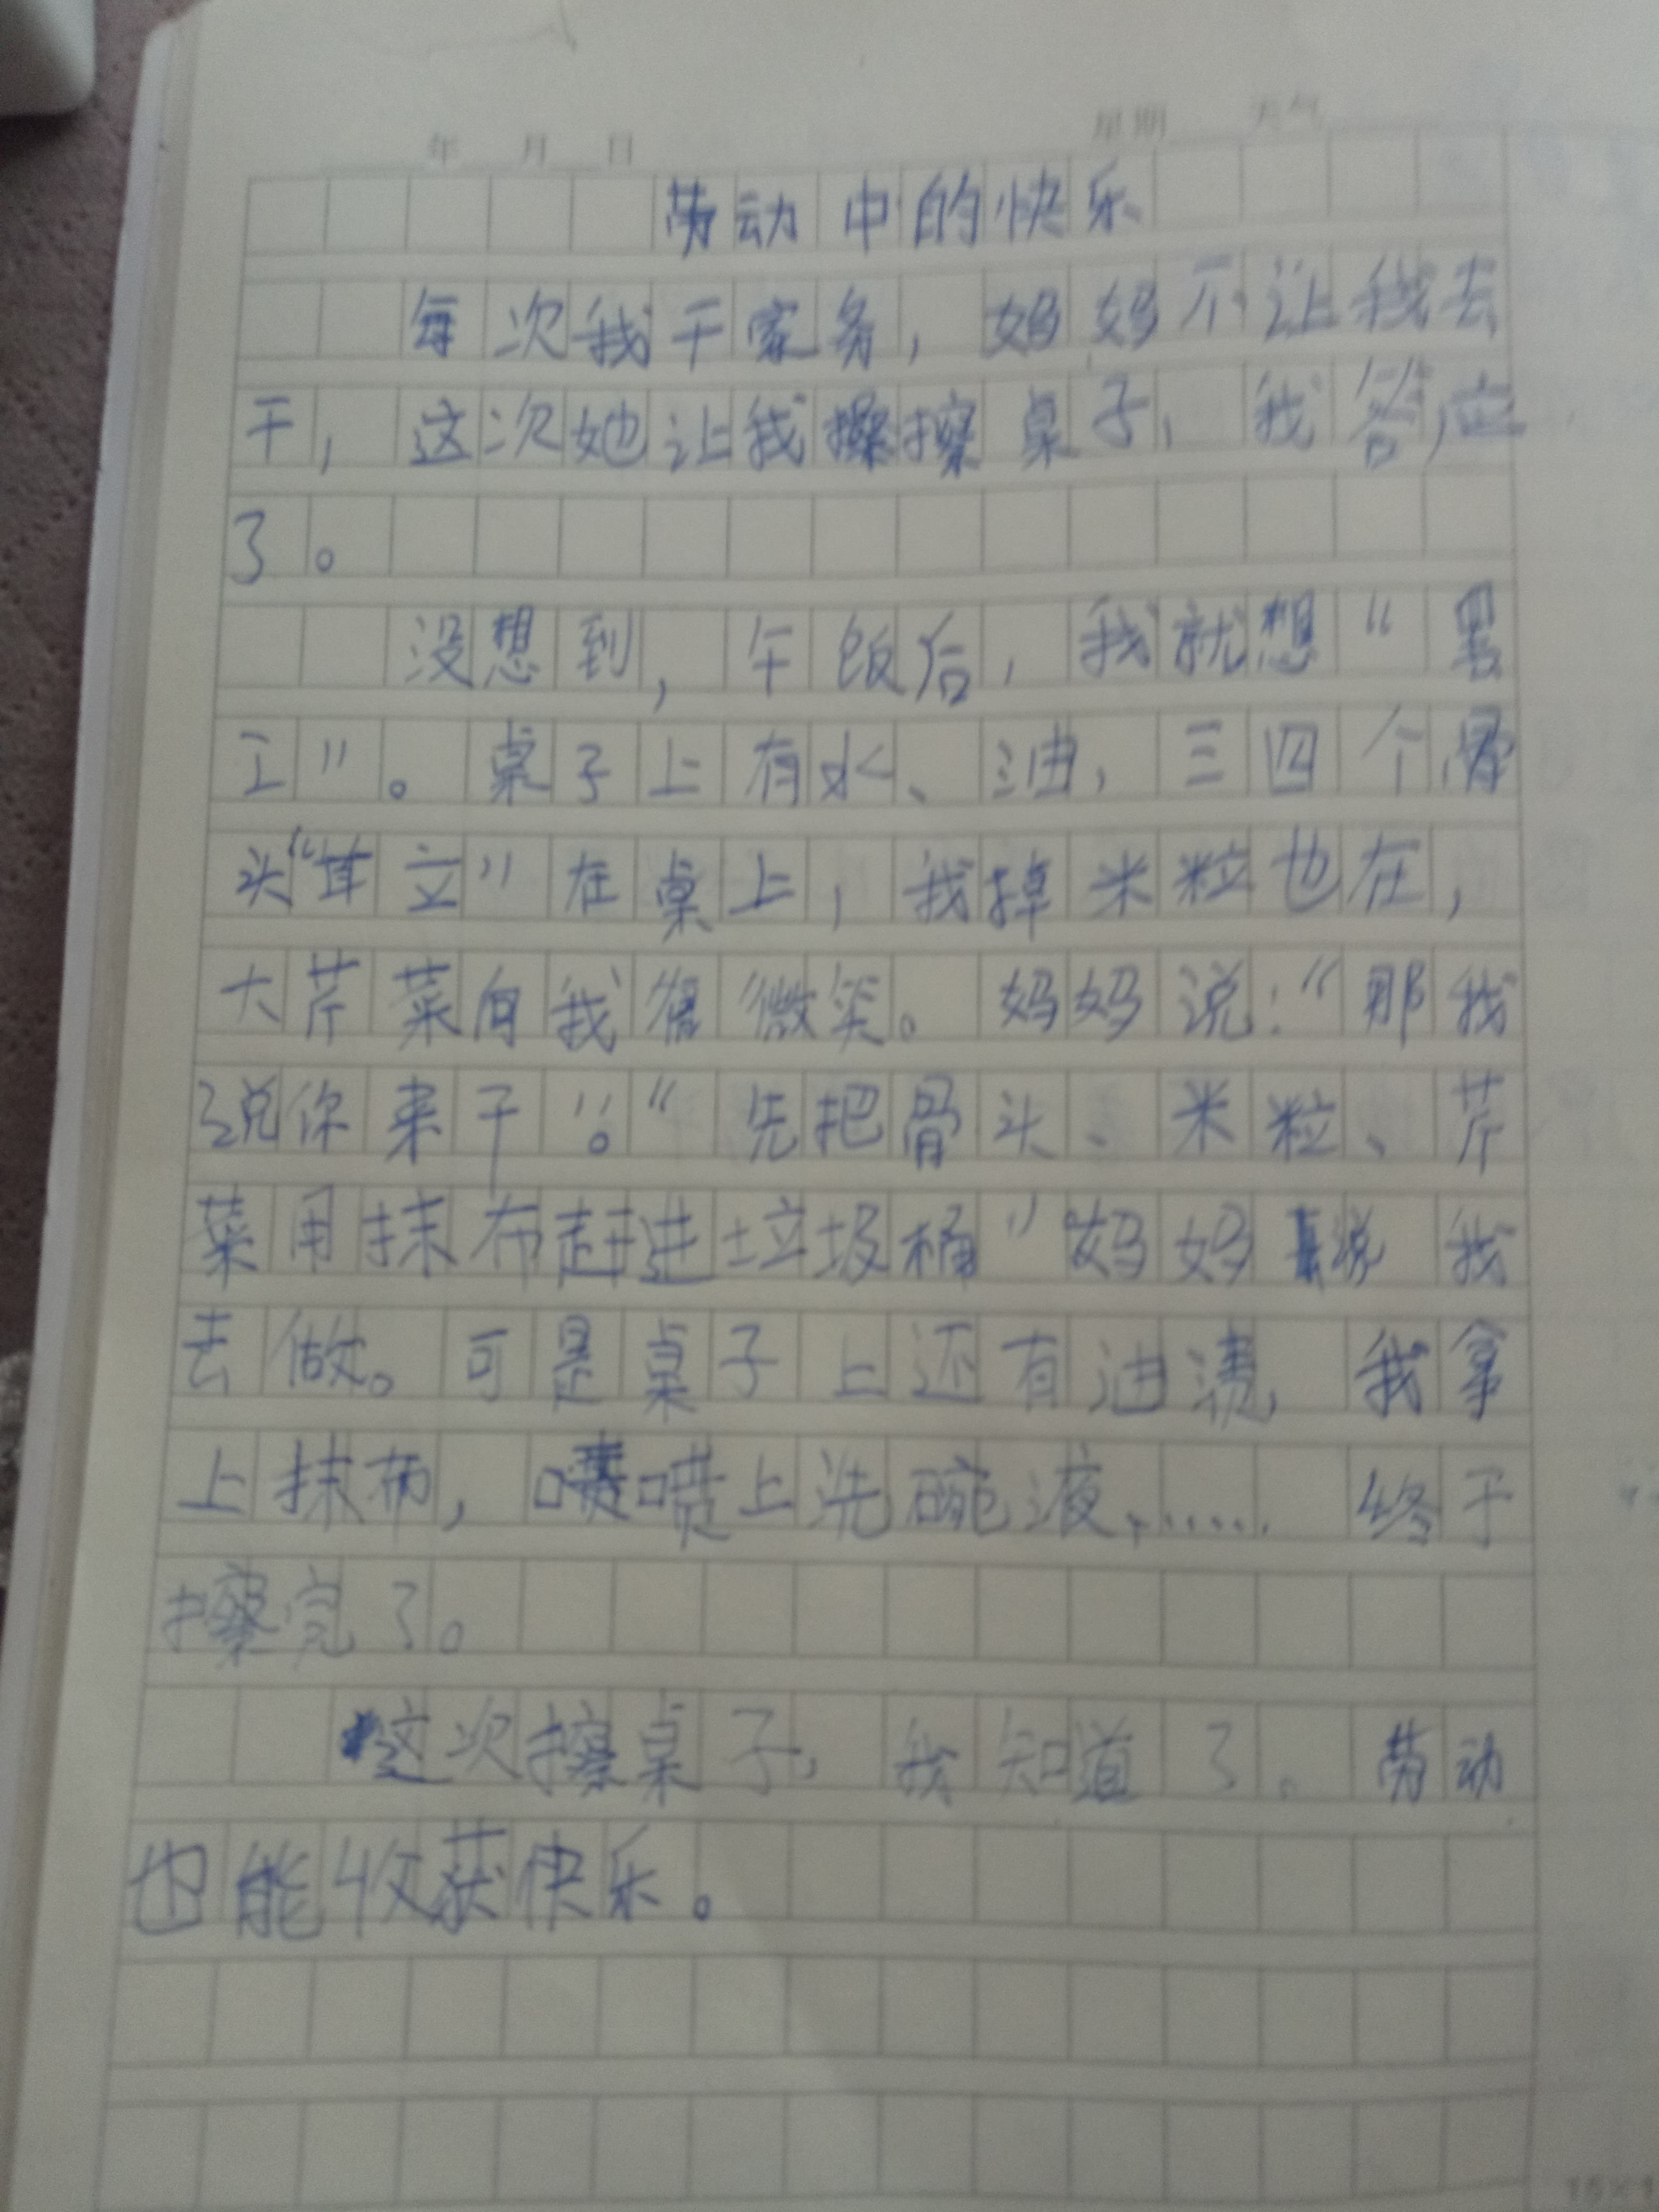 年 月 日 星期 天气
劳动中的快乐
每次我干家务，妈妈不让我去
干，这次她让我擦擦桌子，我答应
了。
没想到，午饭后，我就想“罢
工”。桌子上有水、油，三四个骨
头“耸立”在桌上，我掉米粒也在，
大芹菜向我 微笑。妈妈说：“那我
说你来干！”“先把骨头、米粒、芹
菜用抹布赶进垃圾桶”妈妈 说 我
去做。可是桌子上还有油渍，我拿
上抹布，喷喷上洗碗液，…… 终于
擦完了。
这次擦桌子，我知道了。劳动
也能收获快乐。